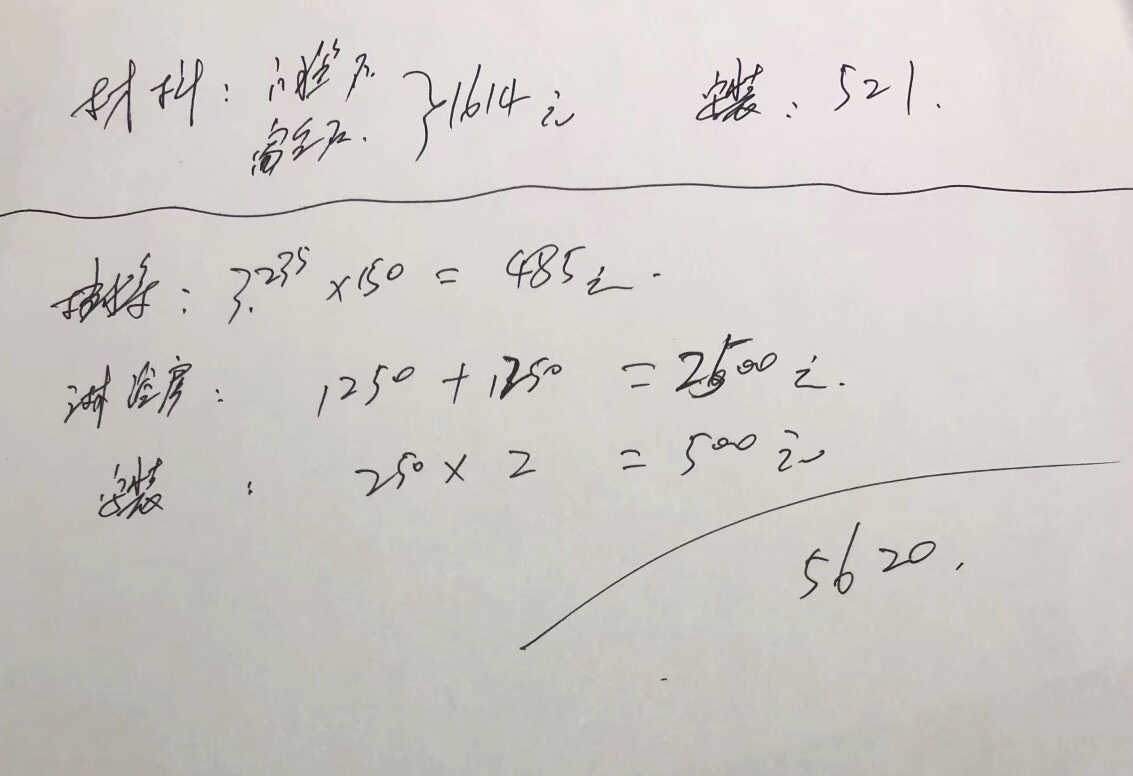 材料：门槛石
窗台石. }1614元 安装：521.
抽槽：3.235×150 = 485元.
淋浴房：1250+1250 = 2500元.
安装：250×2 = 500元
5620.